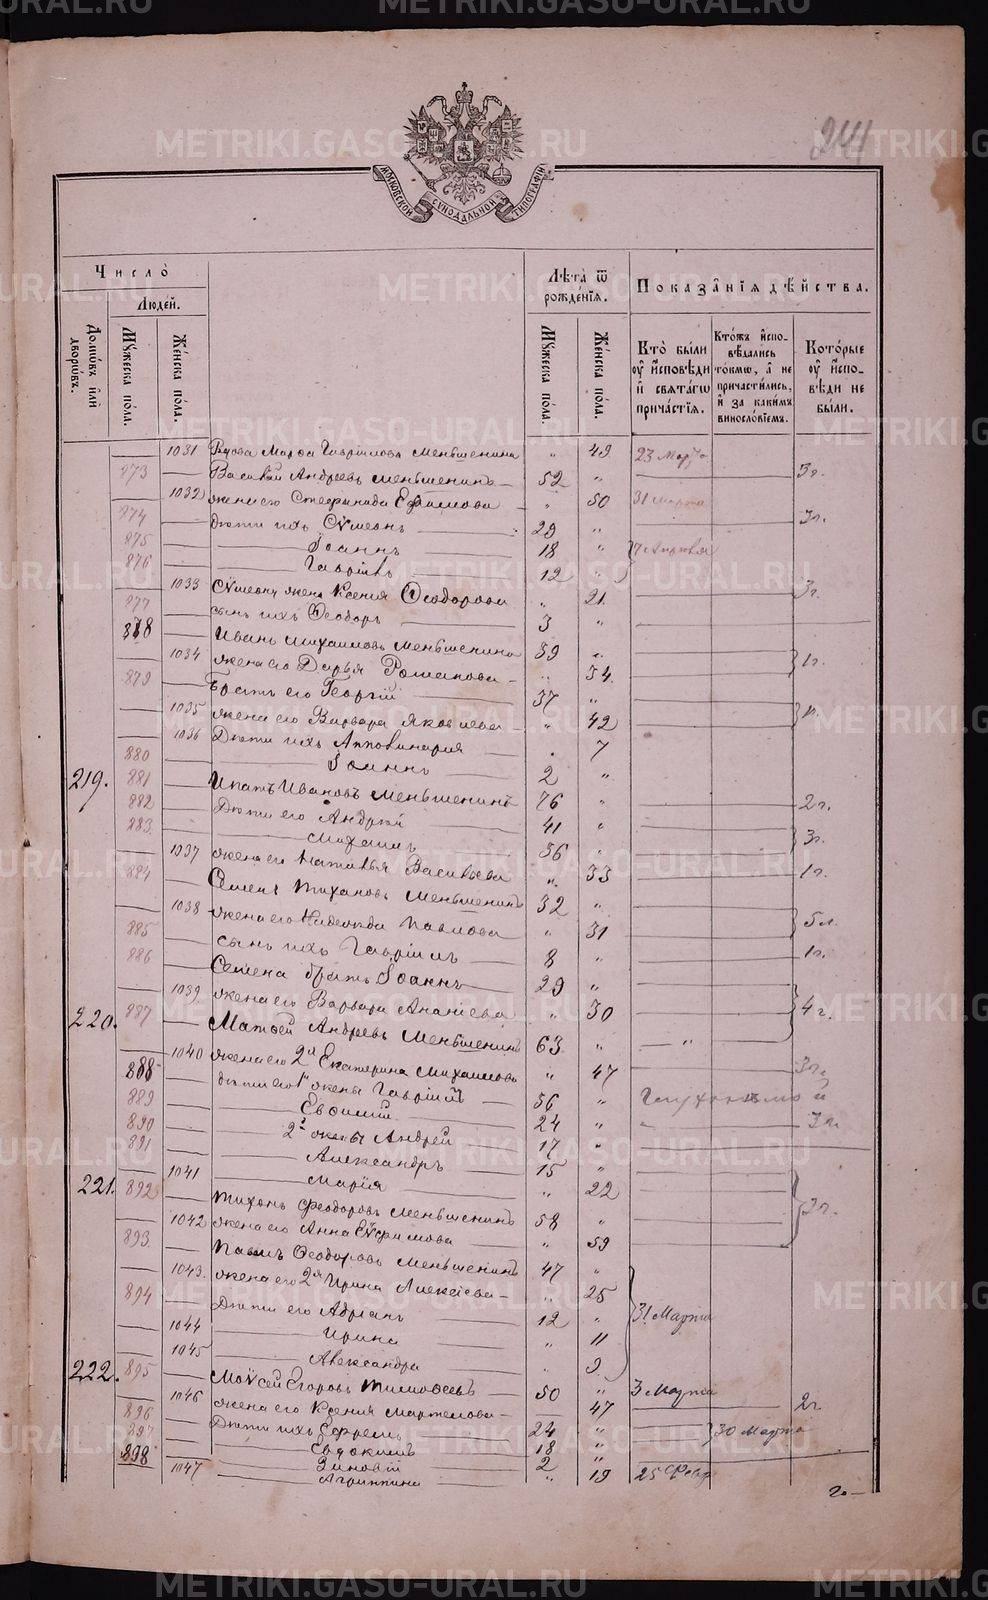 241
МОСКОВСКОЙ СѴНОДАЛЬНОЙ ТИПОГРАФІИ
Число̀
Людей.
Домѡвъ или дворѡвъ.
Мꙋжеска пола.
Женска пола.
Лѣта ѿ рожденїѧ.
Мꙋжеска пола.
Женска пола.
Показанїѧ дѣйства.
Кто были оу исповѣди и свѧтагѡ причастїѧ.
Ктожъ исповѣдались токмѡ, а не причастились, и за какимъ винословїемъ.
Которые оу исповѣди не были.
1031 Вдова Марѳа Гаврилова Меньшенина " 49 23 Марта
873 Василій Андреевъ Меньшенинъ 52 " 3 г.
1032 жена его Стефанида Ефимова " 50 31 Марта
874 дѣти ихъ Сѵмеонъ 29 " 3 г.
875 Іоаннъ 18 " 7 Апрѣля
876 Гавріилъ 12 "
1033 Сѵмеона жена Ксенія Ѳеодорова " 21 3 г.
877 сынъ ихъ Ѳеодоръ 3 "
878 Иванъ Михаиловъ Меньшенинъ 59 "
1034 жена его Дарья Романова " 54 1 г.
879 братъ его Георгій 37 "
1035 жена его Варвара Яковлева " 42 1 г.
1036 Дѣти ихъ Апполинарія " 7
880 Іоаннъ 2 "
219. 881 Ипатъ Ивановъ Меньшенинъ 76 " 2 г.
882 Дѣти его Андрей 41 " 3 г.
883 Михаилъ 36 "
1037 жена его Наталья Васильева " 33 1 г.
884 Семенъ Тихановъ Меньшенинъ 32 "
1038 жена его Надежда Павлова " 31 5 л.
885 сынъ ихъ Гавріилъ 8 " 1 г.
886 Семена братъ Іоаннъ 29 "
1039 жена его Варвара Ананіева " 30 4 г.
220. 887 Матѳей Андреевъ Меньшенинъ 63 "
1040 жена его 2я Екатерина Михаилова " 47 3 г.
888 дѣти его 1й жены Гавріилъ 36 " Глухонѣмой
889 Евѳимій 24 " 3 г.
890 2й жены Андрей 17 "
891 Александръ 15 "
1041 Марія " 22 3 г.
221. 892 Тихонъ Ѳеодоровъ Меньшенинъ 58 "
1042 жена его Анна Еѵфимова " 59
893 Павелъ Ѳеодоровъ Меньшенинъ 47 "
1043. жена его 2я Ирина Алексѣева " 25
894 Дѣти его Адріанъ 12 " 31 Марта
1044 Ирина " 11
1045 Александра " 9
222. 895 Моѵсей Егоровъ Тимоѳеевъ 50 " 3 Марта
1046 жена его Ксенія Мартемова " 47 2 г.
896 Дѣти ихъ Ефремъ 24 " 30 Марта
897 Евдокимъ 18 "
898 Зиновій 2 "
1047 Агриппина " 19 25 Февр
METRIKI.GASO-URAL.RU